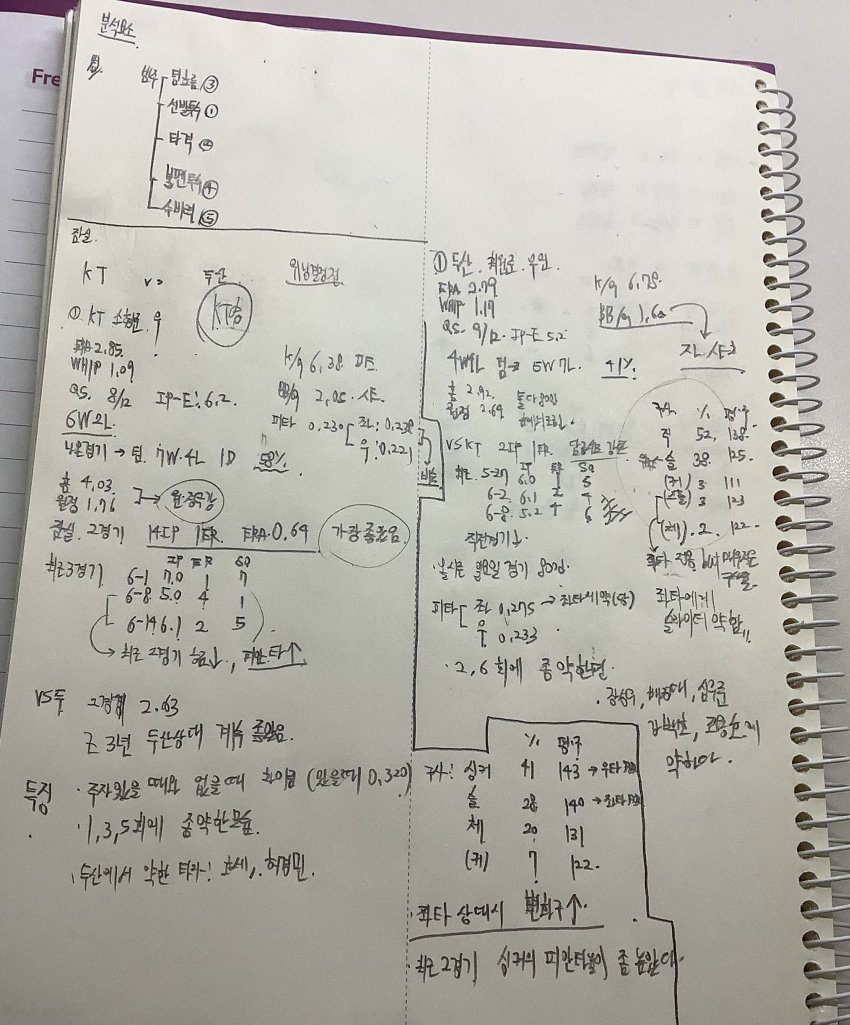 분석요소
Fre
팀흐름 ③
선발투수 ①
타격 ②
불펜투수 ④
수비력 ⑤
잠실.
KT vs 두산
KT승
① KT 소형준 우
ERA 2.85.
WHIP 1.09
K/9 6.38
QS. 8/12 IP-E: 6.2.
BB/9 2.05.
6W 2L
피타 0.230 좌: 0.238
우: 0.221
나온경기 → 팀 7W 4L 1D 58%
홈 4.03
원정 1.76
원정극강
잠실. 2경기 14IP 1ER. ERA 0.64 가장 좋았음
최근3경기 IP ER SO
6-1 7.0 1 7
6-8 5.0 4 1
6-14 6.1 2 5
최근 2경기 흐름↓, 피안타↑
VS두 2경기 2.63
근 3년 두산상대 계속 좋았음.
특징 · 주자있을 때와 없을때 차이큼 (있을때 0.320)
· 1, 3, 5회에 좀 약한모습.
· 두산에서 약한 타자: 호세, 허경민.
① 두산. 최원준 우완.
ERA 2.79
WHIP 1.19
K/9 6.75.
BB/9 1.60
QS. 9/12. IP-E 5.2
4W 4L 팀→ 5W 7L 41%
홈 2.92
원정 2.64
VS KT 2IP 1ER
IP ER SO
최근. 5-27 6.0 1 5
6-2 6.1 2 4
6-8 5.2 4 6
직전경기↓.
구사 % 평.구
직 52. 138.
슬 38. 125.
(커) 3 111
3 123
(체). 2. 122.
피타 좌 0.275 → 좌타에 약(당)
우 0.233
좌타에게
슬라이더 약함,,
· 2, 6 회에 좀 약한편.
· 장성우, 배정대, 심우준
강백호, 조용호에
약하다.
% 평.구
구사: 싱커 41 143 → 우타
슬 28 140 → 좌타
체 20 131
(커) 7 122.
· 좌타 상대시 변화구↑.
· 최근 2경기 싱커의 피안타율이 좀 높았다.